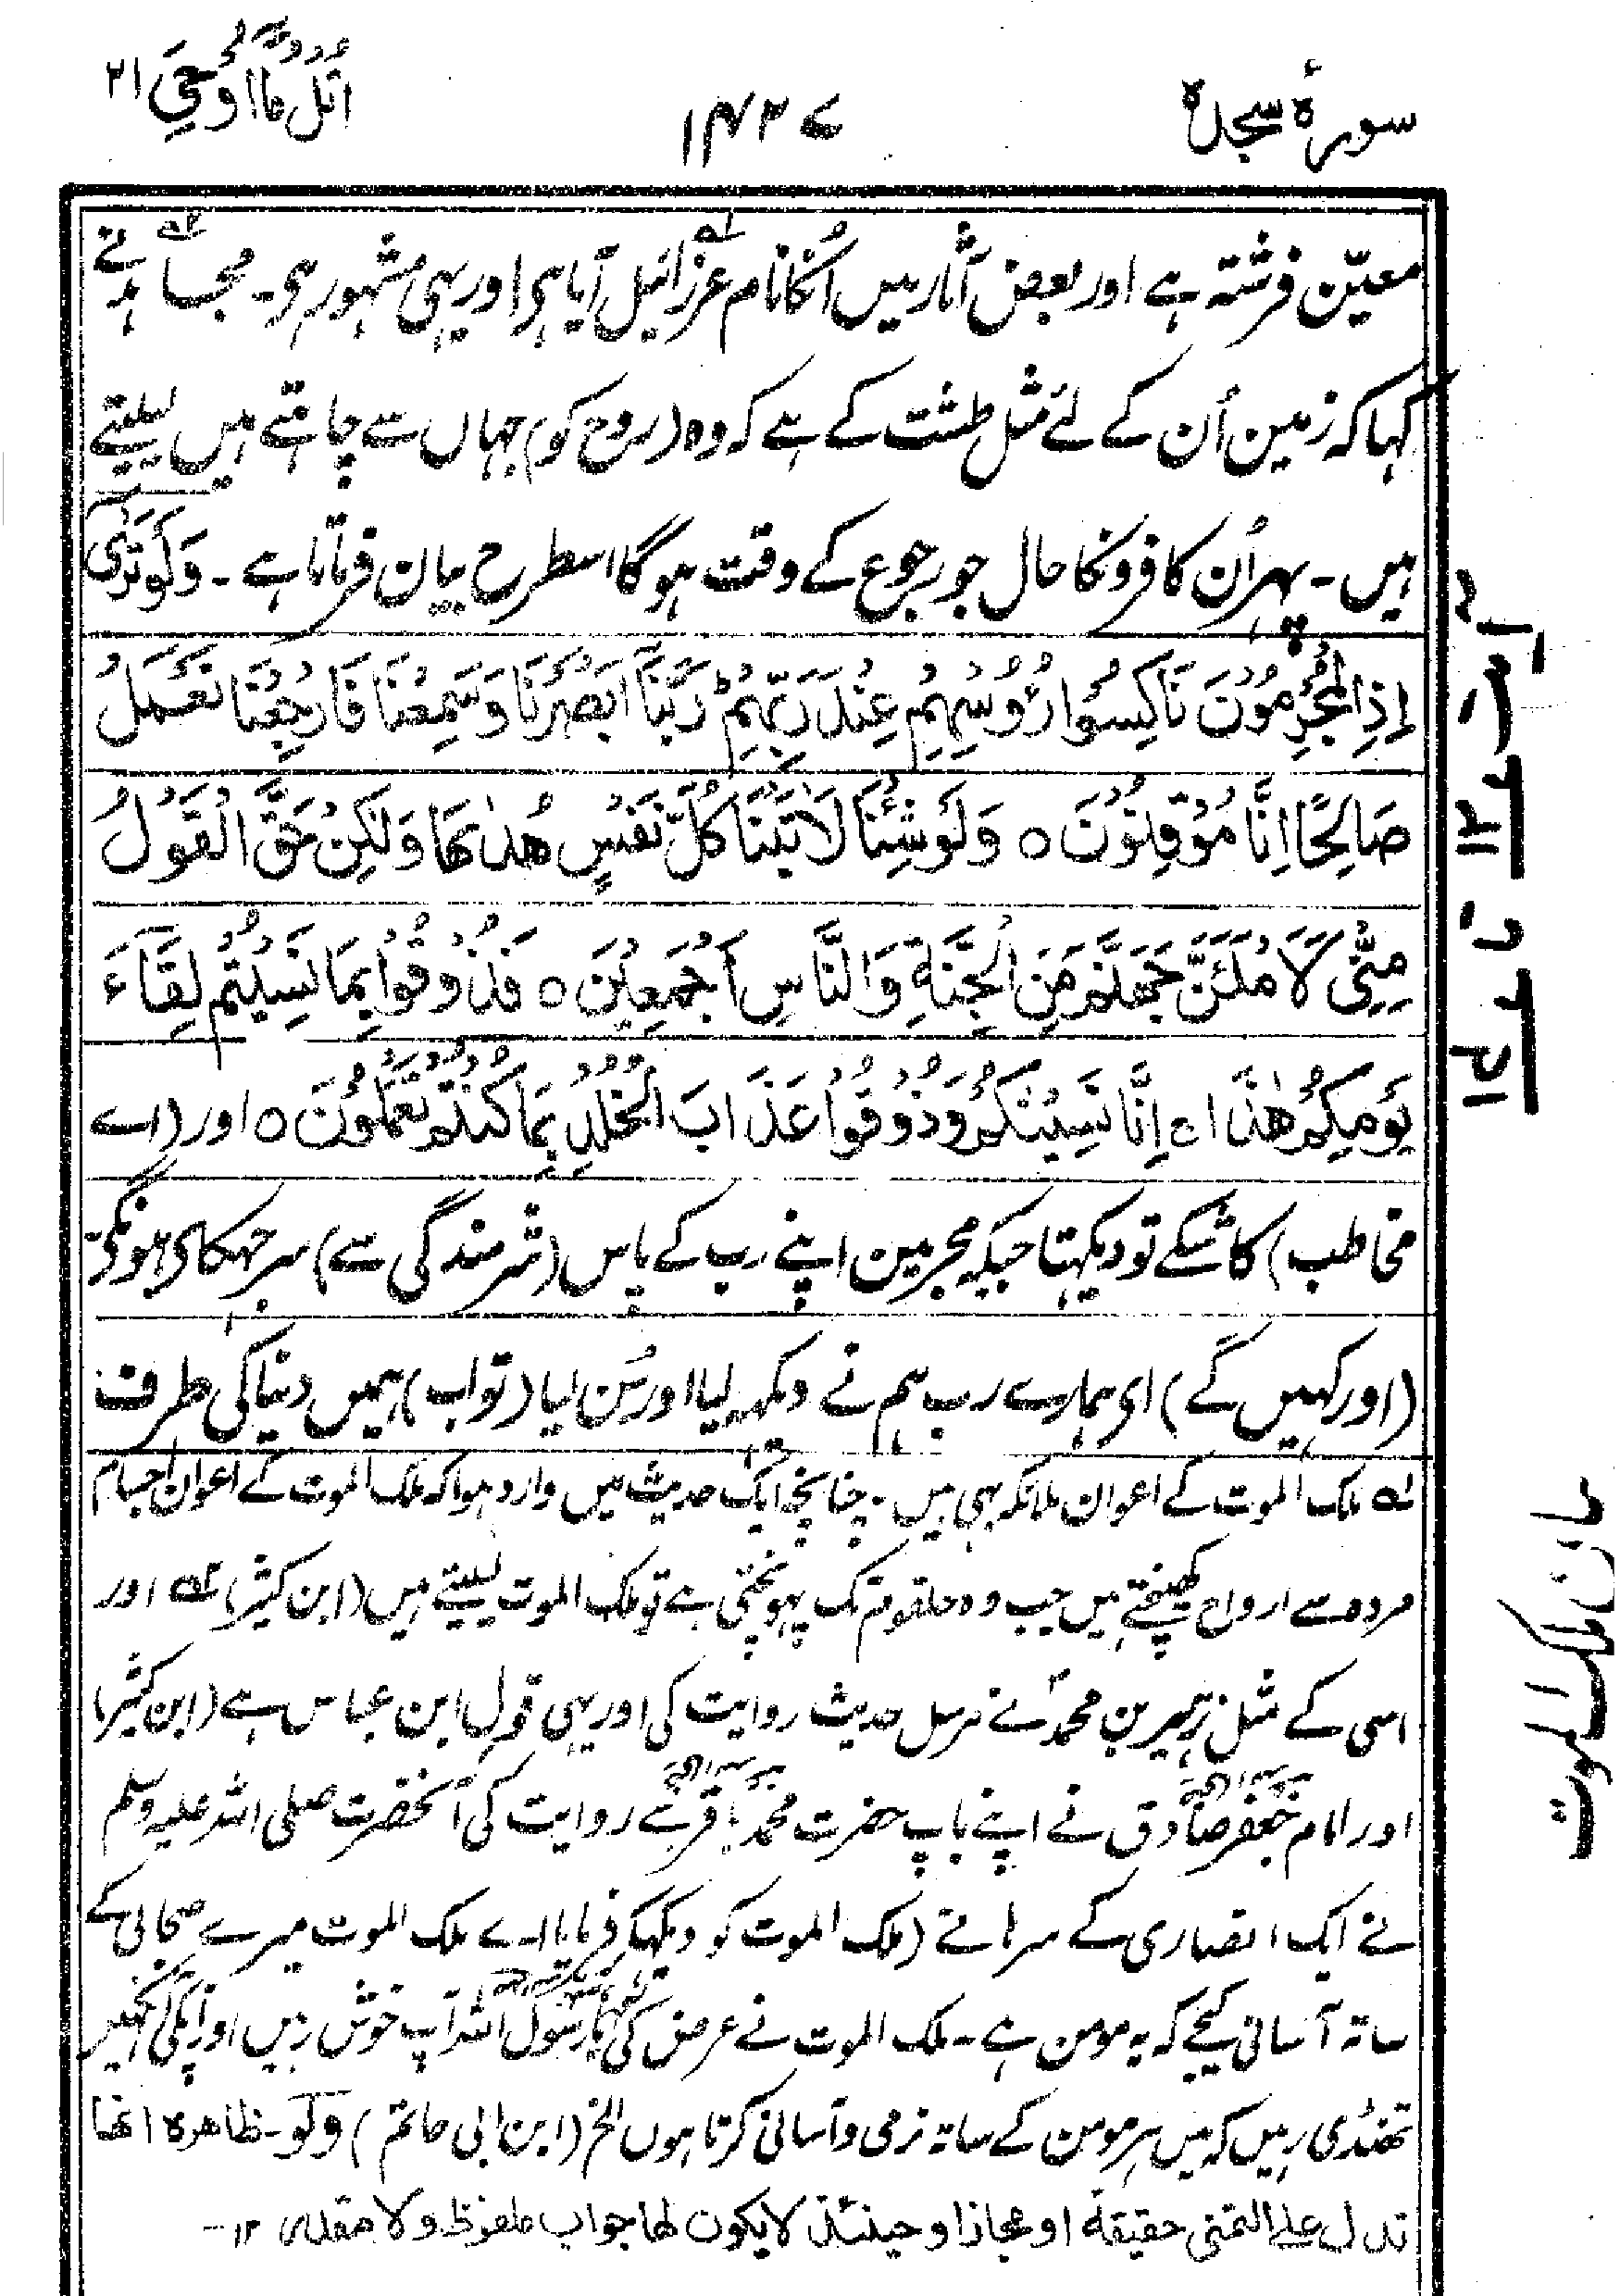 سورۂ سجدہ
۱۴۲۷
اُتْلُ مَآ اُوْحِیَ ۲۱
معیّن فرشتہ ہے اور بعض آثار میں اُنکا نام عزرائیل آیا ہی اور یہی مشہور ہی۔ مجاہد نے
کہا کہ زمین اُن کے لئے مثل طشت کے ہے کہ وہ (روح کو) جہاں سے چاہتے ہیں لیلیتے
ہیں۔ پھر اُن کافرونکا حال جو رجوع کے وقت ہوگا اسطرح بیان فرماتا ہے۔ وَلَوْ تَرٰٓی
اِذِ الْمُجْرِمُوْنَ نَاكِسُوْا رُءُوْسِهِمْ عِنْدَ رَبِّهِمْ ؕ رَبَّنَآ اَبْصَرْنَا وَسَمِعْنَا فَارْجِعْنَا نَعْمَلْ
صَالِحًا اِنَّا مُوْقِنُوْنَ ○ وَلَوْ شِئْنَا لَاٰتَيْنَا كُلَّ نَفْسٍ هُدٰىهَا وَلٰكِنْ حَقَّ الْقَوْلُ
مِنِّیْ لَاَمْلَئَنَّ جَهَنَّمَ مِنَ الْجِنَّةِ وَالنَّاسِ اَجْمَعِيْنَ ○ فَذُوْقُوْا بِمَا نَسِيْتُمْ لِقَآءَ
يَوْمِكُمْ هٰذَا ۚ اِنَّا نَسِيْنٰكُمْ وَذُوْقُوْا عَذَابَ الْخُلْدِ بِمَا كُنْتُمْ تَعْمَلُوْنَ ○ اور (اے
مخاطب) کاشکے تو دیکھتا جبکہ مجرمین اپنے رب کے پاس (شرمندگی سے) سر جھکائے ہونگے
(اور کہیں گے) ای ہمارے رب ہم نے دیکھ لیا اور سُن لیا (تو اب) ہمیں دنیا کی طرف
۱ہ ملک الموت کے اعوان ملائکہ بھی ہیں۔ چنانچہ ایک حدیث میں وارد ہوا کہ ملک الموت کے اعوان اجسام
مردہ سے ارواح کھینچتے ہیں جب وہ حلقوم تک پہونچتی ہے تو ملک الموت لیلیتے ہیں (ابن کثیر) ۲ہ اور
اسی کے مثل زہیر بن محمد نے مرسل حدیث روایت کی اور یہی قول ابن عباس ہے (ابن کثیر)
اور امام جعفر صادق نے اپنے باپ حضرت محمد باقر سے روایت کی آنحضرت صلی اللہ علیہ وسلم
نے ایک انصاری کے سرہانے (ملک الموت کو دیکھا) فرمایا اے ملک الموت میرے صحابی کے
ساتھ آسانی کیجے کہ یہ مومن ہے۔ ملک الموت نے عرض کی یا رسول اللہ آپ خوش رہیں اور آپکی آنکھیں
ٹھنڈی رہیں کہ میں ہر مومن کے ساتھ نرمی و آسانی کرتا ہوں الخ (ابن ابی حاتم) ولو۔ ظاهره انها
تدل على التمنی حقیقة او مجازا و حینئذ لا یکون لها جواب ملفوظ ولا مقدر ۱۲
ملک الموت